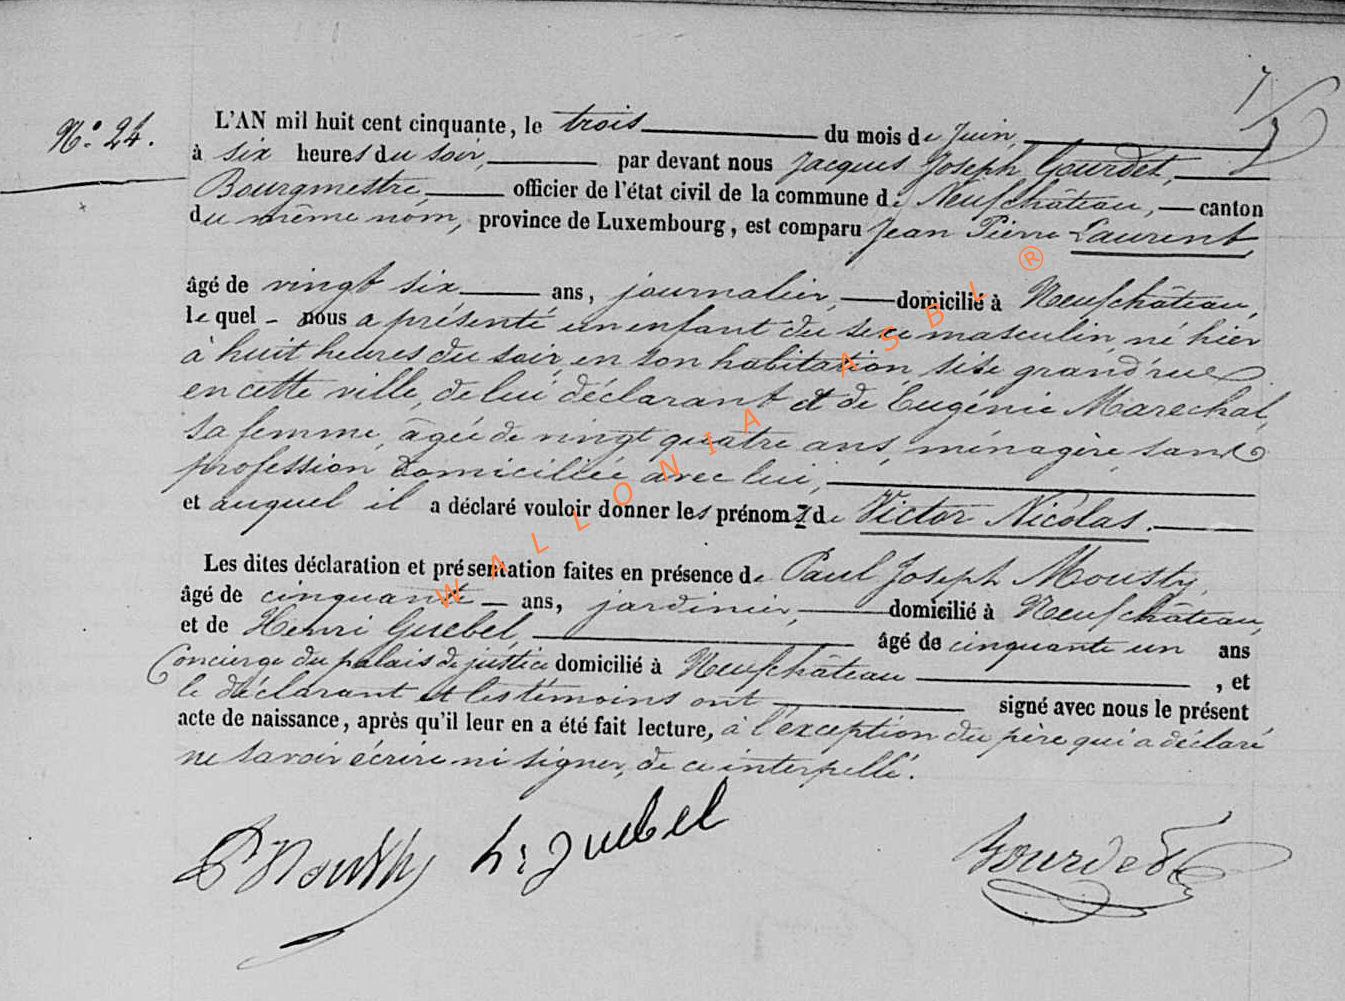 N.º 24.
L'AN mil huit cent cinquante, le trois du mois de Juin,
à six heures du soir, par devant nous Jacques Joseph Gourdet,
Bourgmestre, officier de l'état civil de la commune de Neufchâteau, canton
du même nom, province de Luxembourg, est comparu Jean Pierre Laurent
âgé de vingt six ans, journalier, domicilié à Neufchâteau,
le quel - nous a présenté un enfant du sexe masculin, né hier
à huit heures du soir en son habitation, sise grand'rue
en cette ville, de lui déclarant et de Eugénie Marechal,
sa femme, âgée de vingt quatre ans, ménagère sans
profession domiciliée avec lui,
et auquel il a déclaré vouloir donner les prénoms de Victor Nicolas.
Les dites déclaration et présentation faites en présence de Paul Joseph Mousty,
âgé de cinquante ans, jardinier, domicilié à Neufchâteau,
et de Henri Guebel, âgé de cinquante un ans
Concierge du palais de justice domicilié à Neufchâteau, et
le déclarant et les témoins ont signé avec nous le présent
acte de naissance, après qu'il leur en a été fait lecture, à l'exception du père qui a déclaré
ne savoir écrire ni signer, de ce interpellé.
P Mousty h: guebel Gourdet
WALLONIA ASBL ®